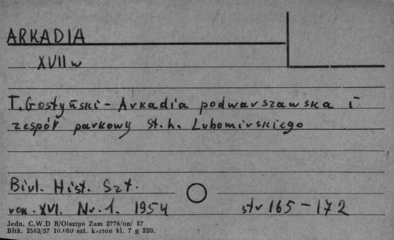 ARKADIA
XVII w
T. Gostyński - Arkadia podwarszawska i
zespół parkowy St. h. Lubomirskiego
Biul. Hist. Szt.
rok. XVI. Nr. 1. 1954 str 165-172
Jedn. C.W.D B/Olsztyn Zam 2776/nn/57
Bltk. 2563/57 10.000 szt. karton kl. 7 g 220.